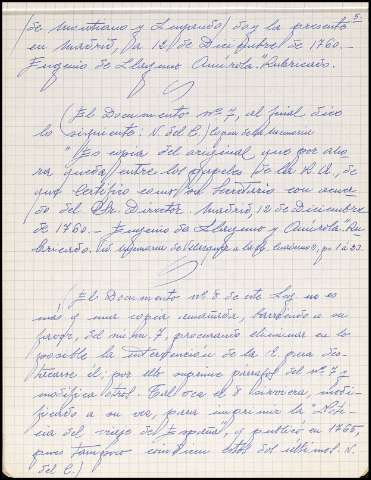 5.-
de Montiano y Luyando) doy la presente
en Madrid, a 12 de Diciembre de 1760.-
Eugenio de Llaguno Amirola." Rubricado.
(El Documento nº 7, al final dice
lo siguiente: N. del C.)
"Es copia del original que por aho-
ra queda entre los papeles de la R.A., de
que certifico como su Secretario con acuer-
do del Sr. Director. Madrid, 12 de Diciembre
de 1760.- Eugenio de Llaguno y Amirola. "Ru-
bricado.
(El Documento nº 8 de este Luz no es
más q una copia amañada, barriendo a su
favor, del num. 7, procurando eliminar en lo
posible la intervención de la A. para des-
tacarse el; por ello suprime parrafos del nº 7 y
modifica otros. Tal vez el 8 sirviera, modi-
ficado a su vez, para imprimir la "Noti-
cia del viaje de España", q publicó en 1765,
pues tampoco coinciden estos dos últimos. N.
del C.)